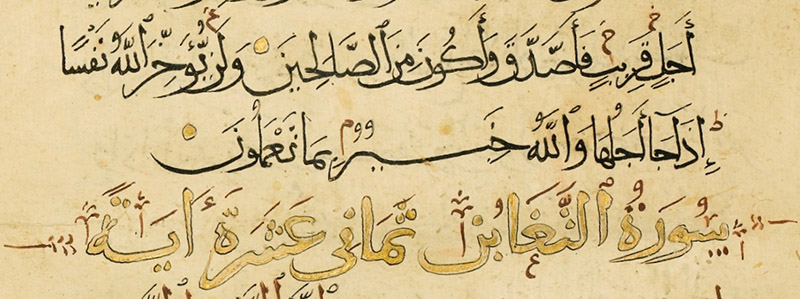 أَجَلٍ قَرِيبٍ فَأَصَّدَّقَ وَأَكُونَ مِنَ ٱلصَّالِحِينَ وَلَن يُؤَخِّرَ ٱللَّهُ نَفْسًا
إِذَا جَآ أَجَلُهَا وَٱللَّهُ خَبِيرٌ بِمَا تَعْمَلُونَ
سُورَةُ ٱلتَّغَابُنِ ثَمَانِي عَشْرَةَ ءَايَةً